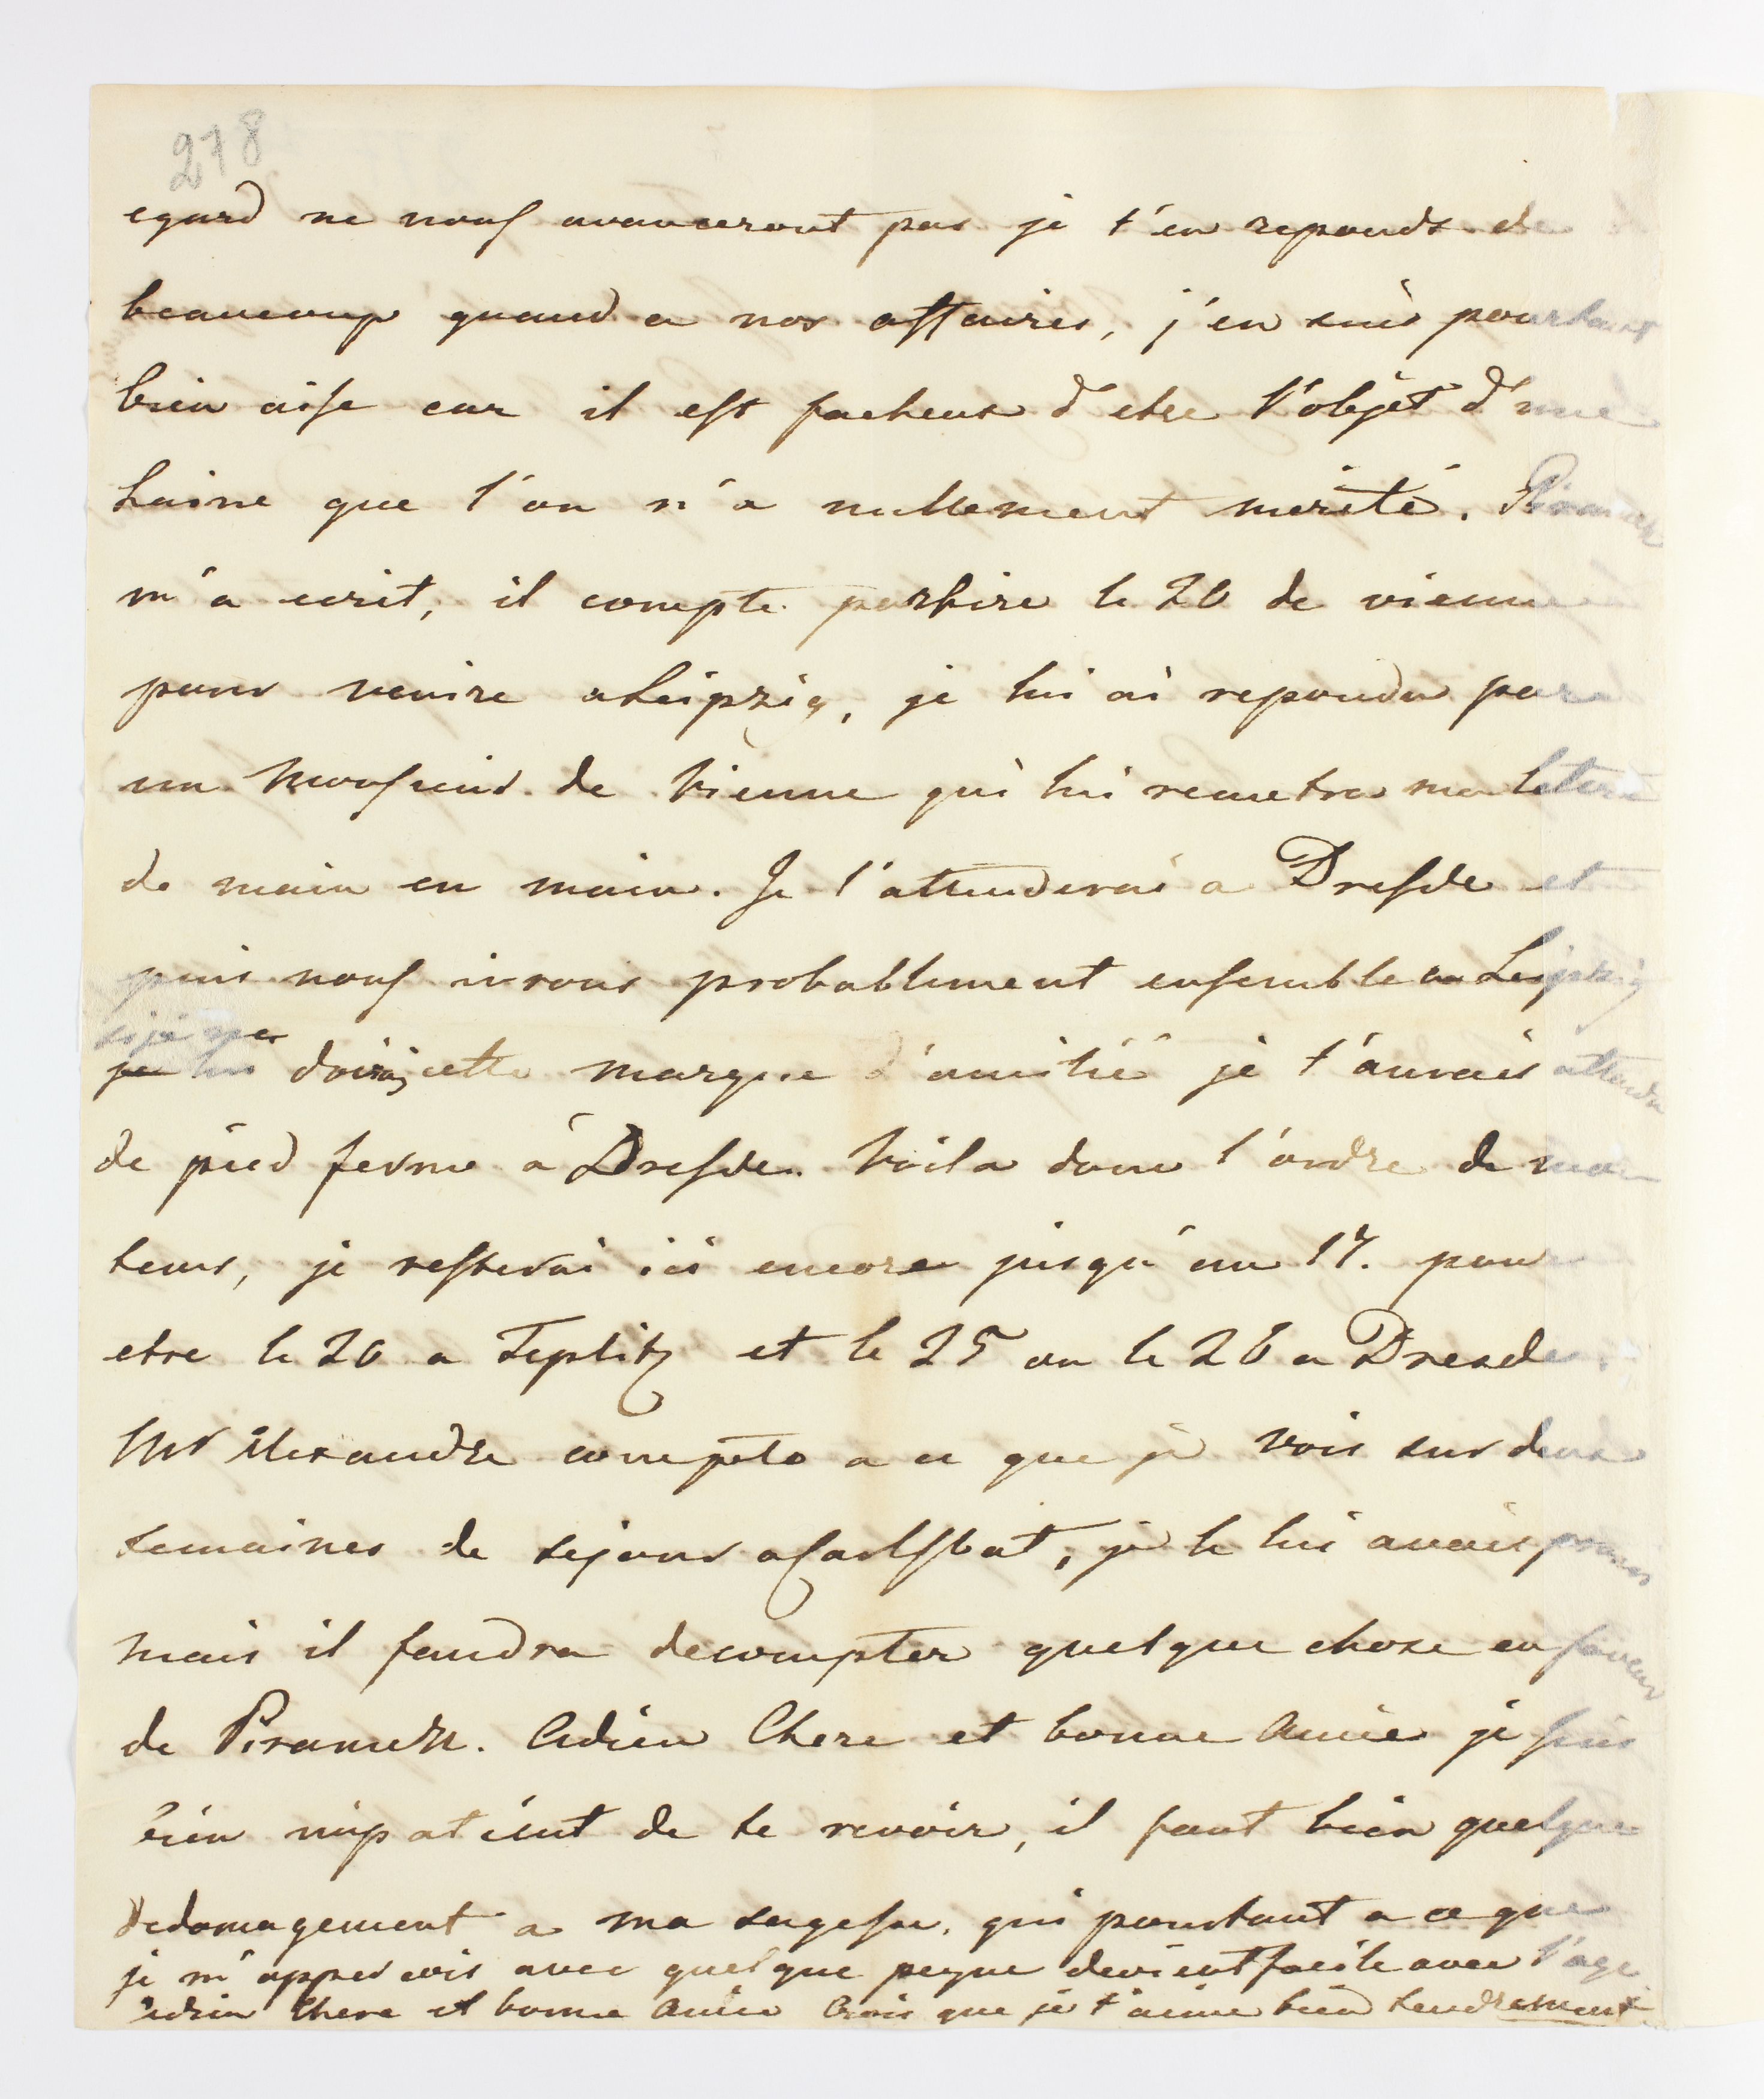 278
egard ne nous avanceront pas je t'en reponds de
beaucoup quand a nos affaires, j'en suis pourtant
bien aise car il est facheux d'etre l'objèt d'une
haine que l'on n'a nullement merité.
m'a ecrit, il compte partire le 20 de vienne
pour venire a Leipzig, je lui ai repondu par
un Monsieur de Vienne qui lui remetra ma letre
de main en main. Je l'attenderai a Dresde et
puis nous irons probablement ensemble a Leipzig
si je ne
je lui doirais cette marque d'amitié je t'aurais attendu
de pied ferme à Dresde. Voila donc l'ordre de mon
tems, je resterai ici encore jusqu'au 17. pour
etre le 20 a Teplitz et le 25 ou le 26 a Dresde.
Mr Alexandre compte a ce que je vois sur deux
semaines de sejour a Carlsbat, je le lui avais promis
mais il faudra decompter quelque chose en faveur
de Piramuh. Adieu Chere et bonne Amie je suis
bien impatient de te revoir, il faut bien quelque
dedomagement a ma sagesse, qui pourtant a ce que
je m'appercois avec quelque peyne devient facile avec l'age.
adieu Chere et bonne Amie Crois que je t'aime bien tendrement